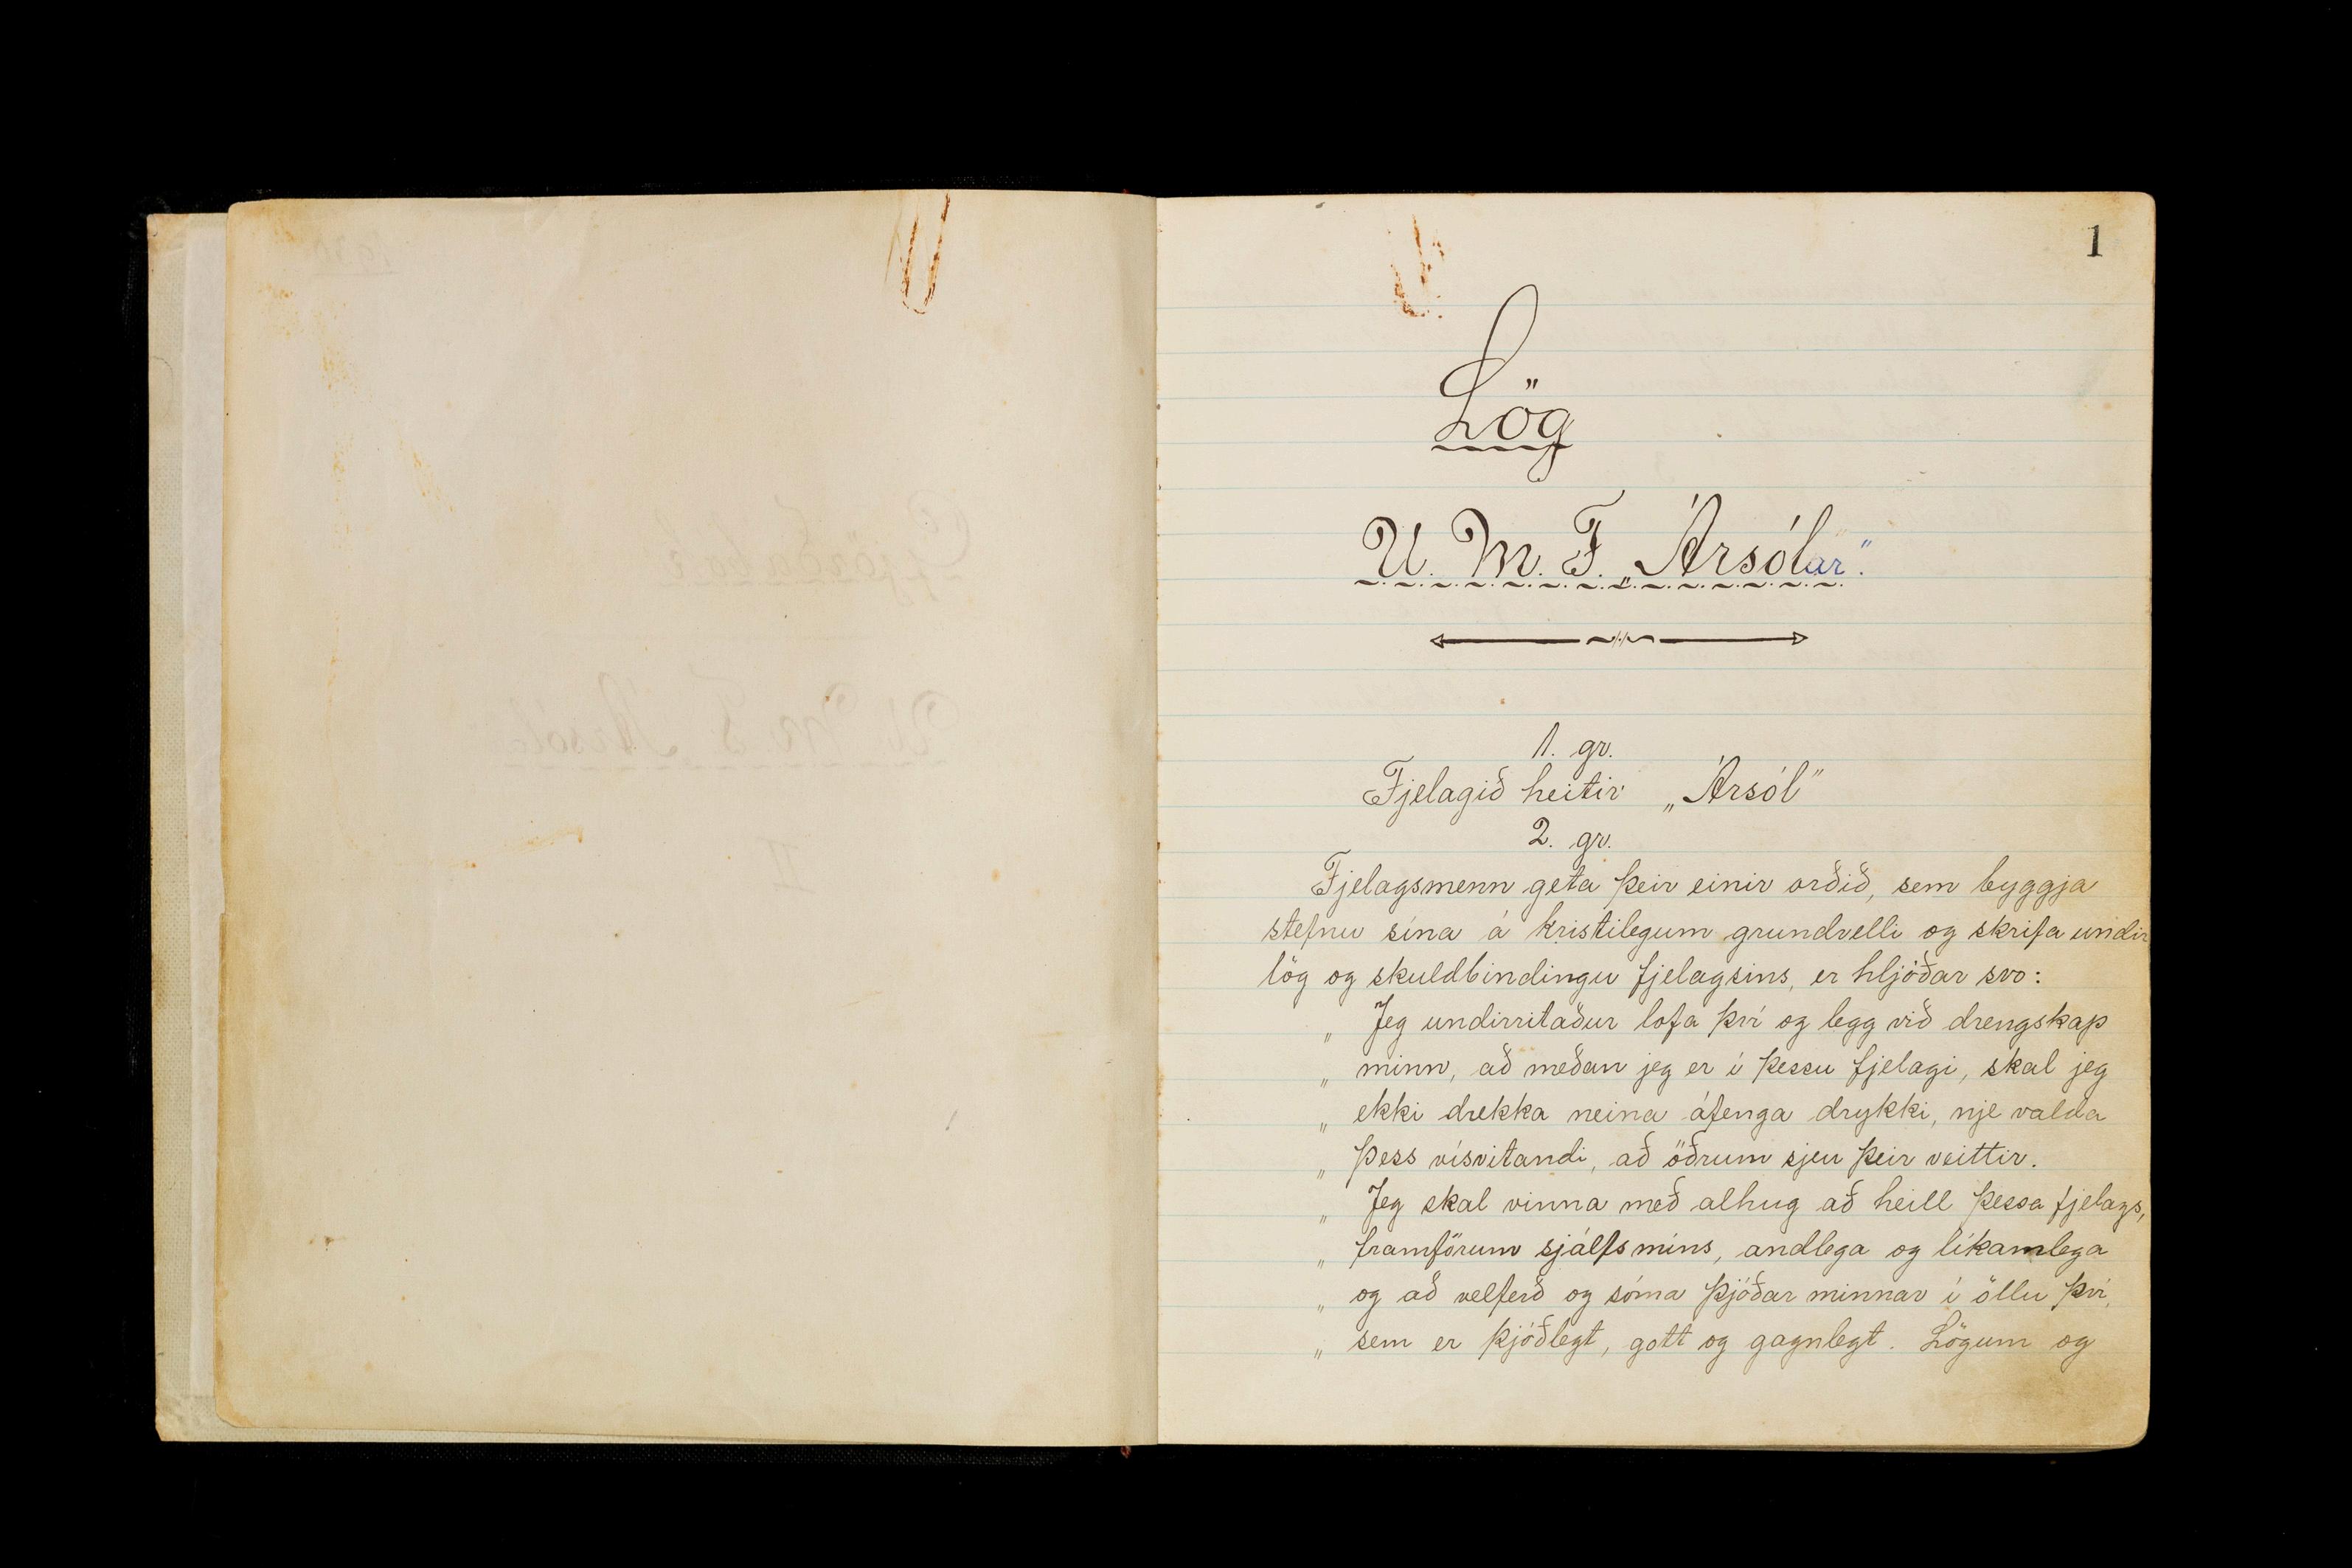 1
Lög
U. M. F. „Ársólar".
1. gr.
Fjelagið heitir „Ársól"
2. gr.
Fjelagsmenn geta þeir einir orðið, sem byggja
stefnu sína á kristilegum grundvelli og skrifa undir
lög og skuldbindingu fjelagsins, er hljóðar svo:
„ Jeg undirritaður lofa því og legg við drengskap
„ minn, að meðan jeg er í þessu fjelagi, skal jeg
„ ekki drekka neina áfenga drykki, nje valda
„ þess vísvitandi, að öðrum sjeu þeir veittir.
„ Jeg skal vinna með alhug að heill þessa fjelags,
„ framförum sjálfs míns, andlega og líkamlega
„ og að velferð og sóma þjóðar minnar í öllu því,
„ sem er þjóðlegt, gott og gagnlegt. Lögum og